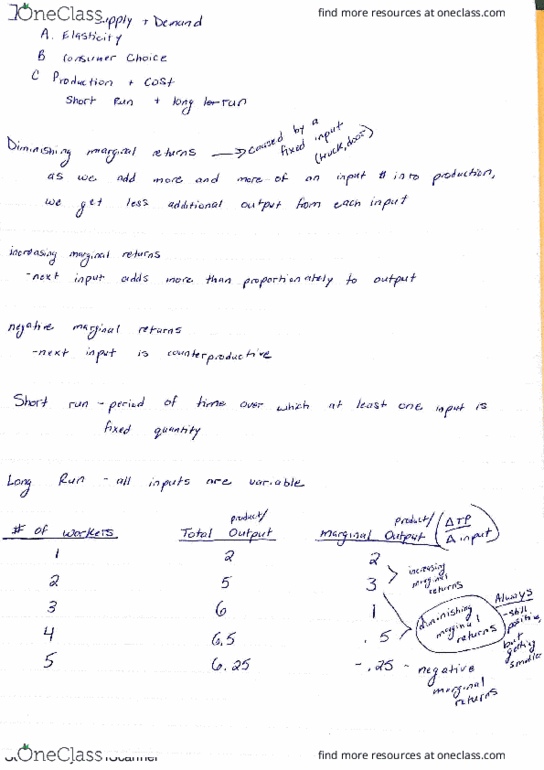 OneClass
find more resources at oneclass.com
Supply + Demand
A. Elasticity
B Consumer Choice
C Production + Cost
Short Run + long run
Diminishing marginal returns → caused by a fixed input (truck, door)
as we add more and more of an input into production,
we get less additional output from each input
increasing marginal returns
-next input adds more than proportionately to output
negative marginal returns
-next input is counterproductive
Short run - period of time over which at least one input is
fixed quantity
Long Run - all inputs are variable
# of workers Total product/Output marginal product/Output (ΔTP/Δinput)
1 2 2
2 5 3
increasing marginal returns
3 6 1
4 6.5 .5
diminishing marginal returns
Always -still positive, but getting smaller
5 6.25 -.25 - negative marginal returns
OneClass
find more resources at oneclass.com